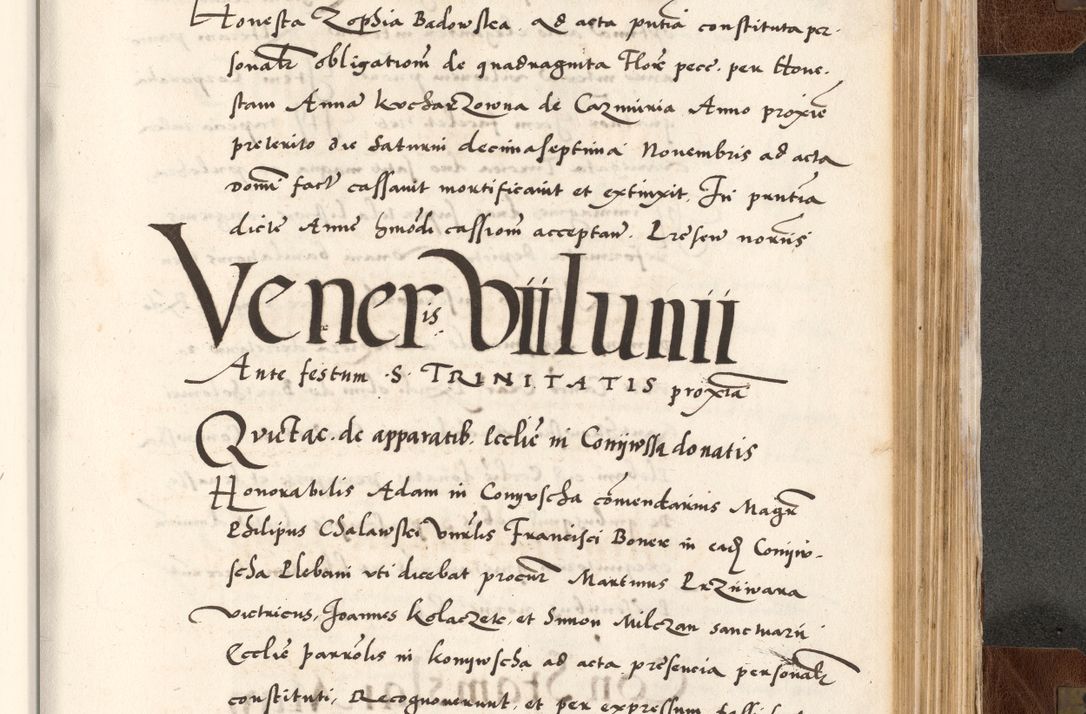 Honesta Zophia Badowska. Ad acta pntia constituta per-
sonalr obligationem de quadraginta Flore pecc. per Hone-
stam Anna KucharZowna de Cazmiria Anno proxie
preterito die Saturni decimaseptima Novembris ad acta
Domi fact cassavit mortificavit et extinxit. In pnntia
dicte Anne hmodi cassiom acceptan. Presen
Veneris VII Iunii
Ante festum S. TRINITATIS proxia
Qvietac. de apparatib. Ecclie in Conijwssa donatis
Honorabilis Adam in Conyvscha comendarius Magr
Philipus Chalawskei Francisci Boner in ead Conijw-
scha Plebani uti dicebat procur Martinus PrZijwara
victricus, Joannes KolacZek, et Simon MilcZan sanctuarii
Ecclie parrolis in konijwscha ad acta presencia personalr
constituti, Recognoverunt, et per expressum